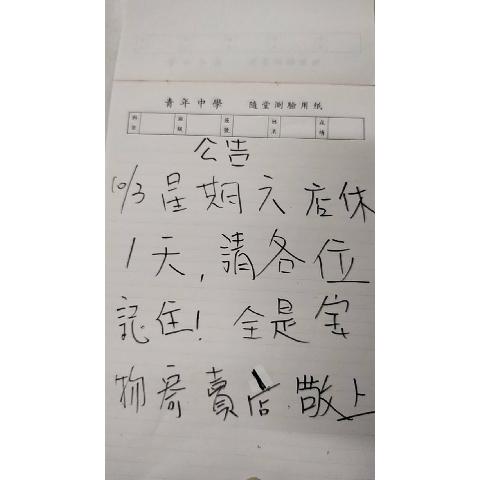 青年中學 隨堂測驗用紙
科目 班級 座號 姓名 成績
公告
10/3星期六店休
1天,請各位
記住!全是宝
物寄賣店敬上